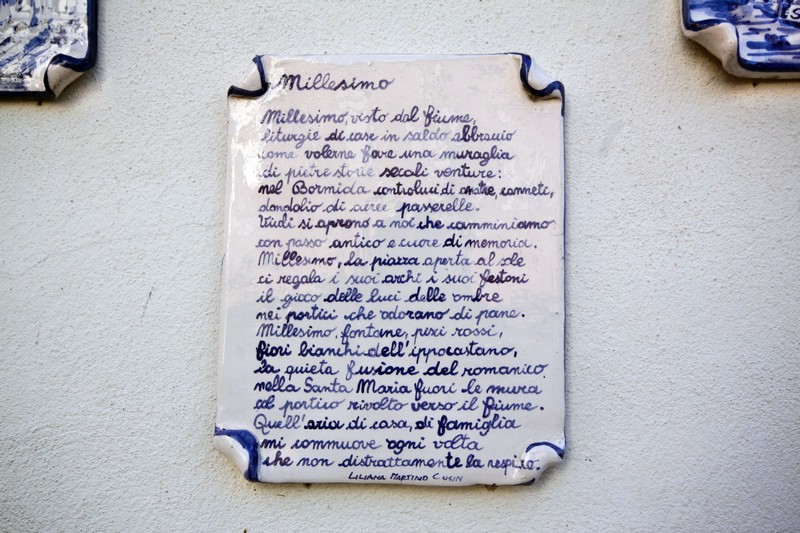 Millesimo
Millesimo, visto dal fiume,
liturgie di case in saldo abbraccio
come volerne fare una muraglia
di pietre storie secoli venture:
nel Bormida controluci di anatre, canneti,
dondolio di aeree passerelle.
Vicoli si aprono a noi che camminiamo
con passo antico e cuore di memoria.
Millesimo, la piazza aperta al sole
ci regala i suoi archi i suoi festoni
il gioco delle luci delle ombre
nei portici che odorano di pane.
Millesimo, fontane, pesci rossi,
fiori bianchi dell'ippocastano,
la quieta fusione del romanico
nella Santa Maria fuori le mura
col portico rivolto verso il fiume.
Quell'aria di casa, di famiglia
mi commuove ogni volta
che non distrattamente la respiro.
LILIANA MARTINO CUSIN